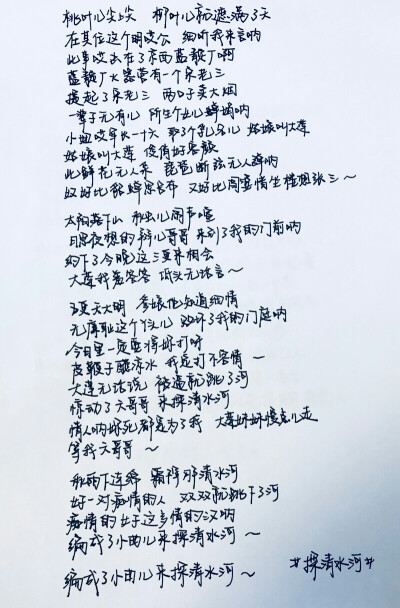 桃叶儿尖上尖 柳叶儿就遮满了天
在其位这个明哎公 细听我来言呐
此事哎出在了京西蓝靛厂啊
蓝靛厂火器营有一个宋老三
提起了宋老三 两口子卖大烟
一辈子无有儿 所生个女儿婵娟呐
小妞哎年长一十六 取了个乳名儿 姑娘叫大莲
姑娘叫大莲 俊俏好容颜
此鲜花无人采 琵琶断弦无人弹呐
奴好比貂蝉思吕布 又好比阎婆惜坐楼想张三~
太阳落下山 秋虫儿闹声喧
日思夜想的六儿哥哥 来到了我的门前呐
约下了今晚这三更来相会
大莲我羞答答 低头无话言~
五更天大明 爹娘他知道细情
无廉耻这个丫头儿 败坏了我的门庭呐
今日里一定要将你打呀
皮鞭子蘸凉水 我定打不容情~
大莲无话说 被逼就跳了河
惊动了六哥哥 来探清水河
情人呐你死都是为了我 大莲妹妹慢点儿走
等我六哥哥~
秋雨下连绵 霜降那清水河
好一对痴情的人 双双就跳下了河
痴情的女子这多情的汉呐
编成了小曲儿来探清水河~
编成了小曲儿来探清水河~ *探清水河*